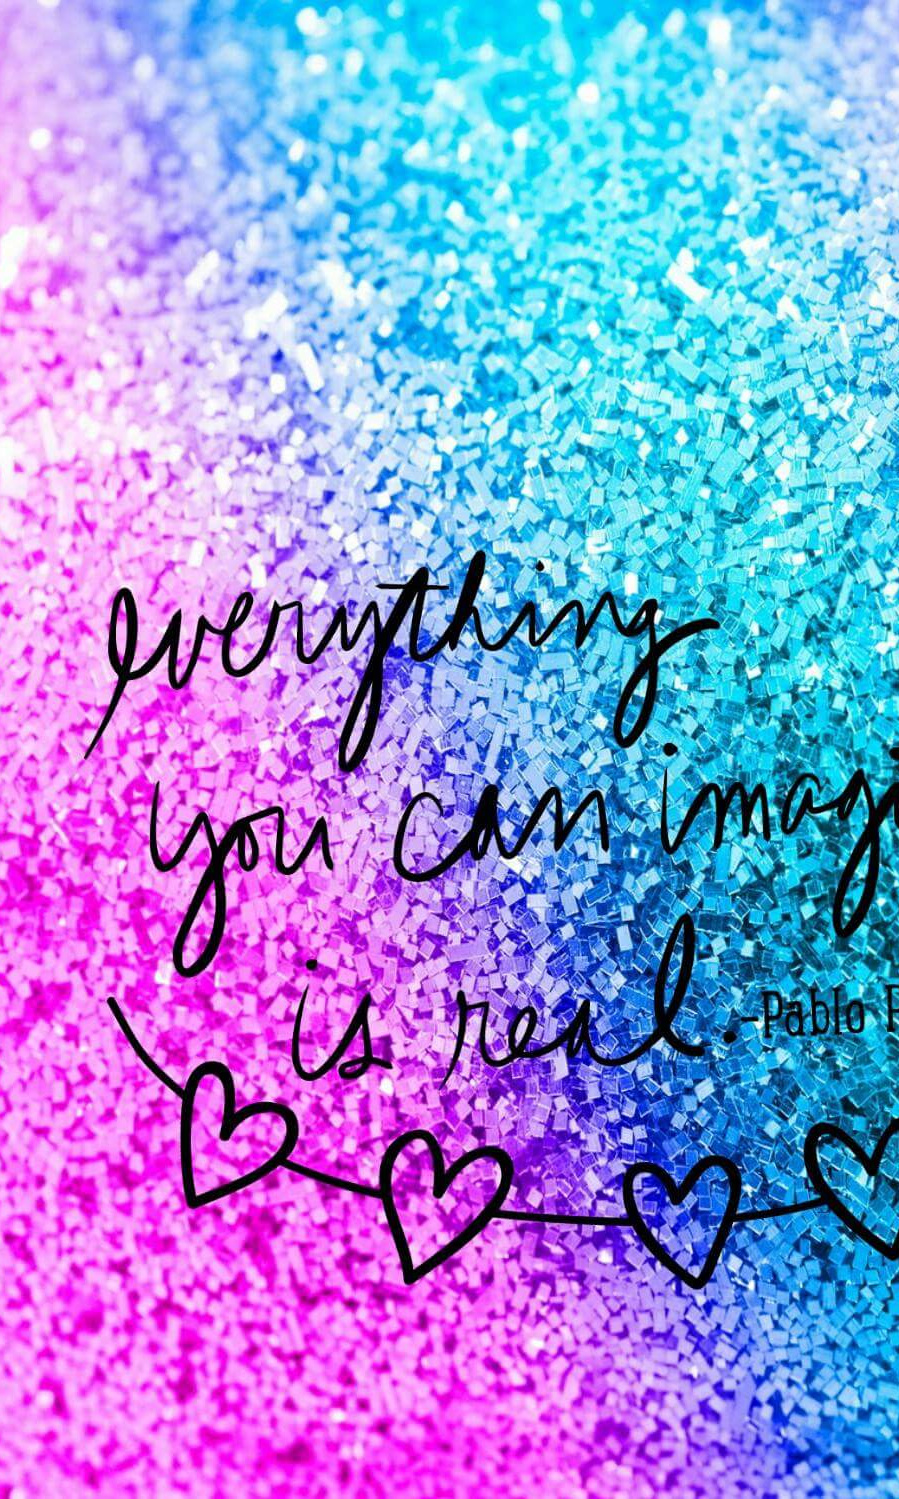 everything
you can imagi
is real.
-Pablo P